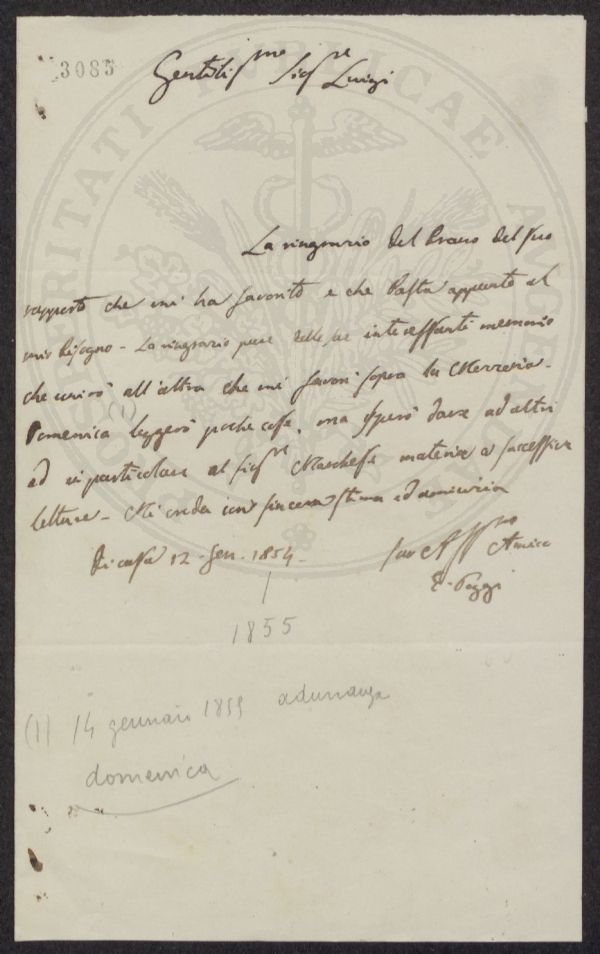 3085
Gentilis.mo Sig.re Luigi
La ringrazio del brano del suo
rapporto che mi ha favorito e che basta appunto al
mio bisogno - La ringrazio pure delle sue interessanti memorie
che unirò all'altra che mi favorì sopra la Merceria -
(1)
Domenica leggerò poche cose, ma spero dare ad altri
ed in particolare al Sig.re Marchese materia a successive
letture - Mi creda con sincera stima ed amicizia
Di casa 12. Gen. 1854 -
Suo Aff.mo Amico
E. Poggi
1855
(1) 14 gennaio 1855 adunanza
domenica
PROSPERITATI PUBLICAE AUGENDAE